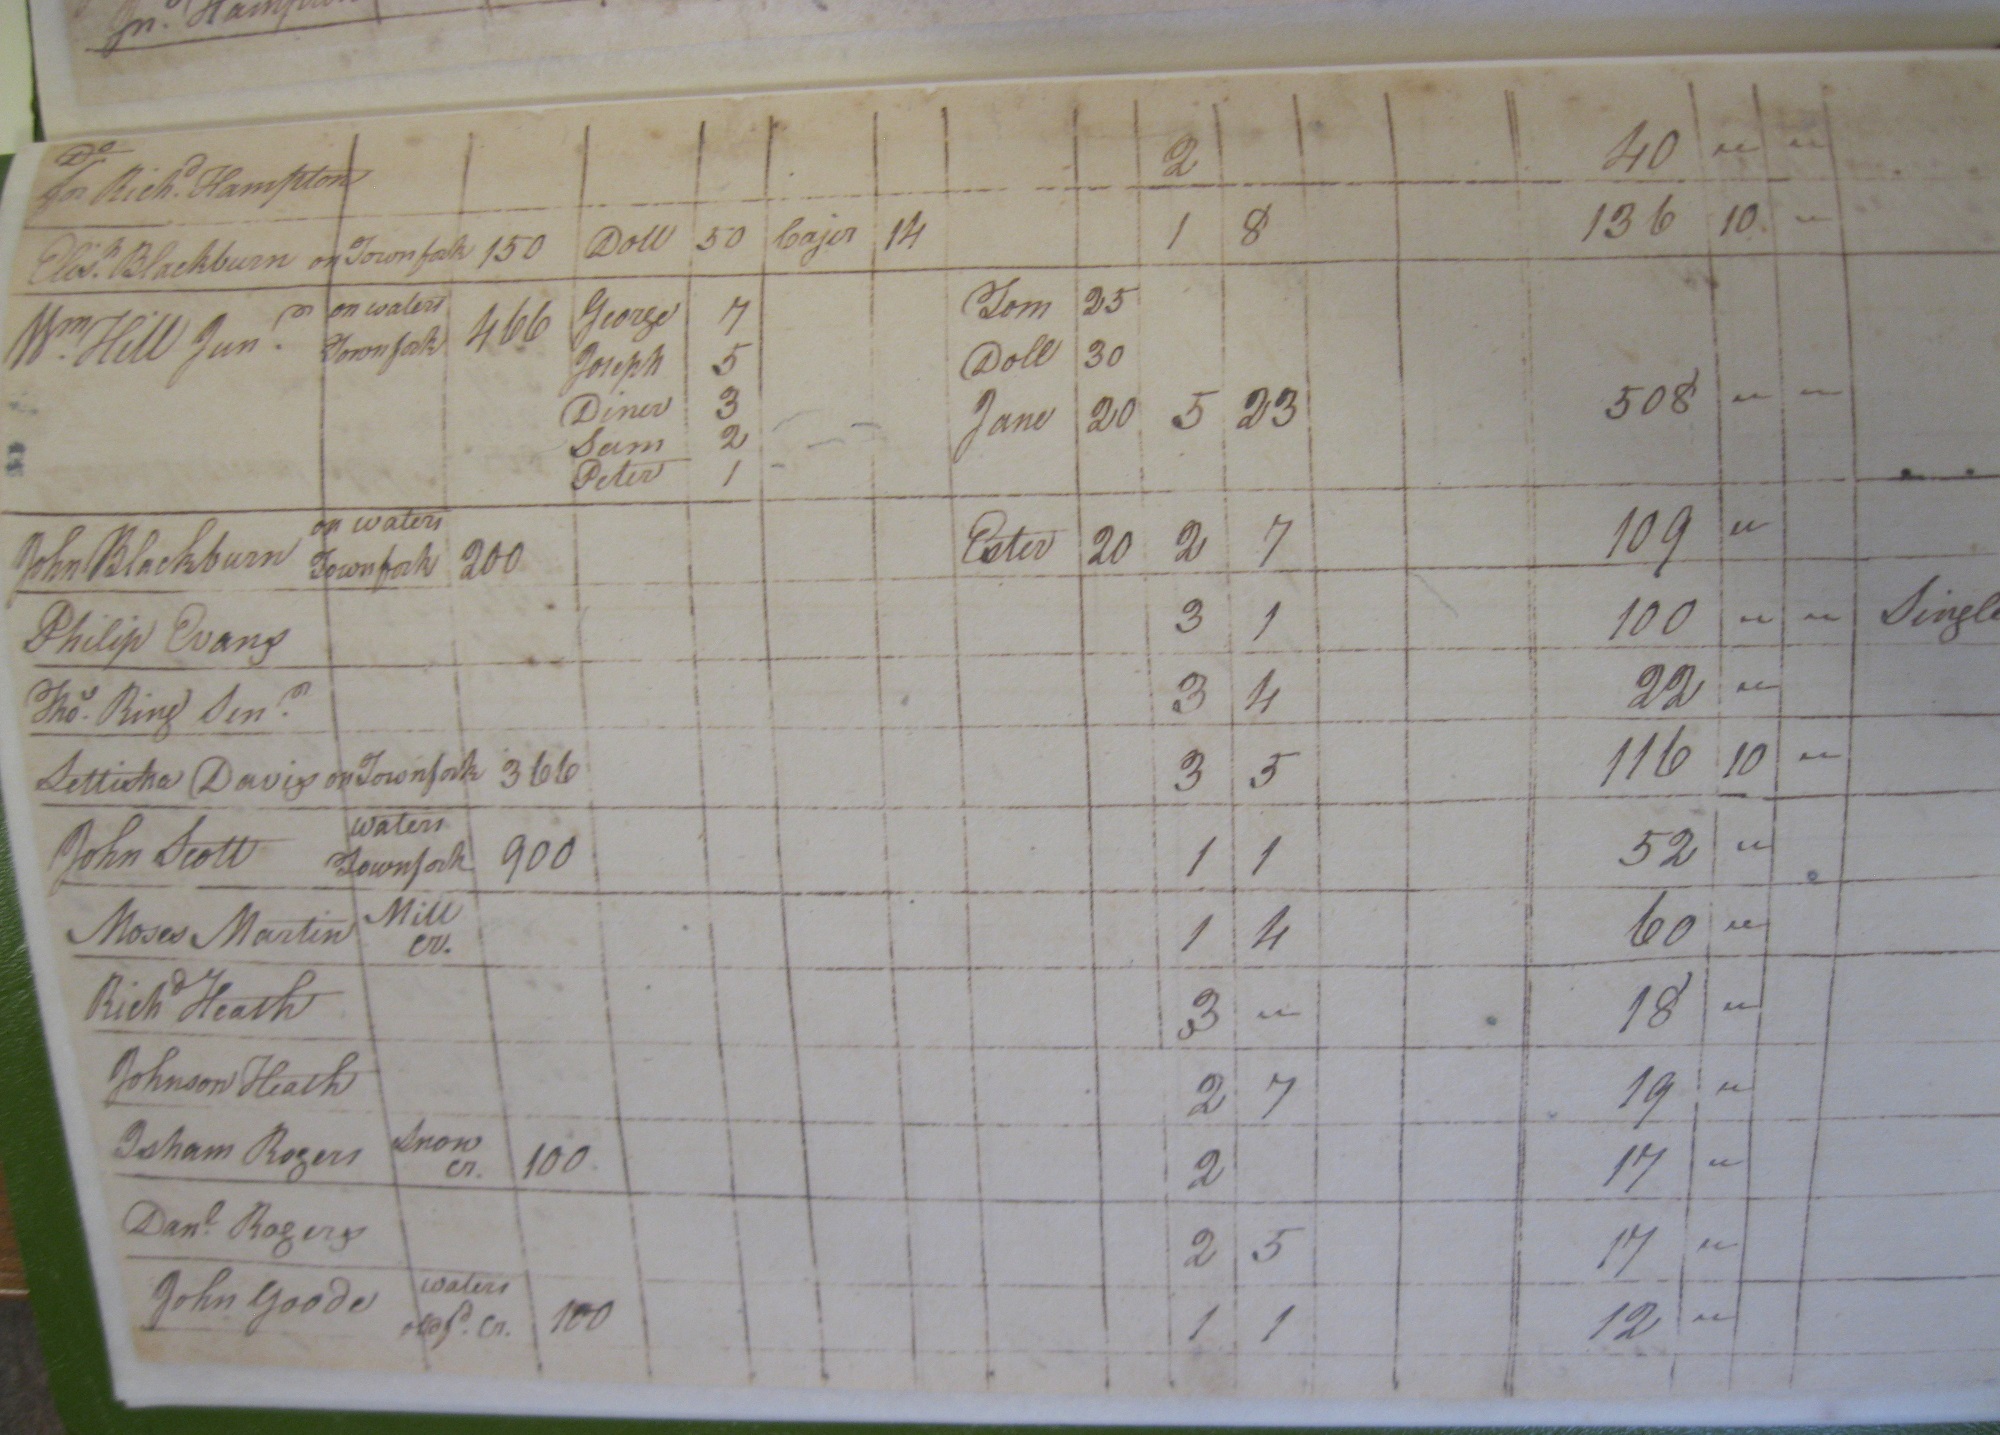 Jno. Hampton
Do
for Richd. Hampton 2 40 " "
Elisa. Blackburn on Townfork 150 Doll 50 Cajer 14 1 8 136 10 "
Wm. Hill Junr. on waters Townfork 466 George 7 Tom 25
Joseph 5 Doll 30
Diner 3 Jane 20 5 23 508 " "
Sam 2
Peter 1
John Blackburn on waters Townfork 200 Ester 20 2 7 109 "
Philip Evans 3 1 100 " " Single
Thos. Ring Senr. 3 4 22 "
Lettisha Davis on Townfork 366 3 5 116 10 "
John Scott waters Townfork 900 1 1 52 "
Moses Martin Mill cr. 1 4 60 "
Richd Heath 3 " 18 "
Johnson Heath 2 7 19 "
Isham Rogers Snow cr. 100 2 17 "
Danl. Rogers 2 5 17 "
John Goode waters Cr. 100 1 1 12 "